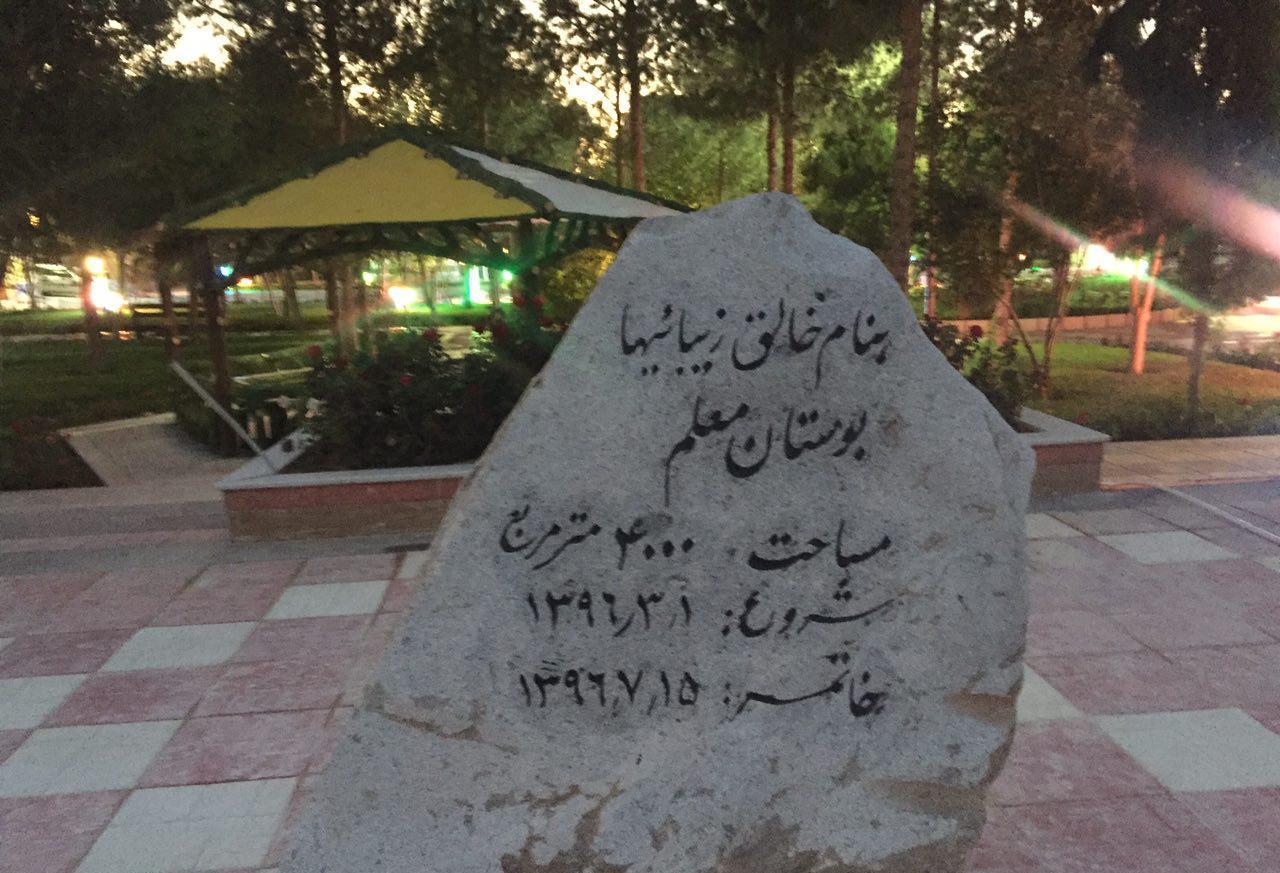 بنام خالق زیبائیها
بوستان معلم
مساحت ۴۰۰۰ متر مربع
شروع: ۱۳۹۶٫۳٫۱
خاتمه: ۱۳۹۶٫۷٫۱۵